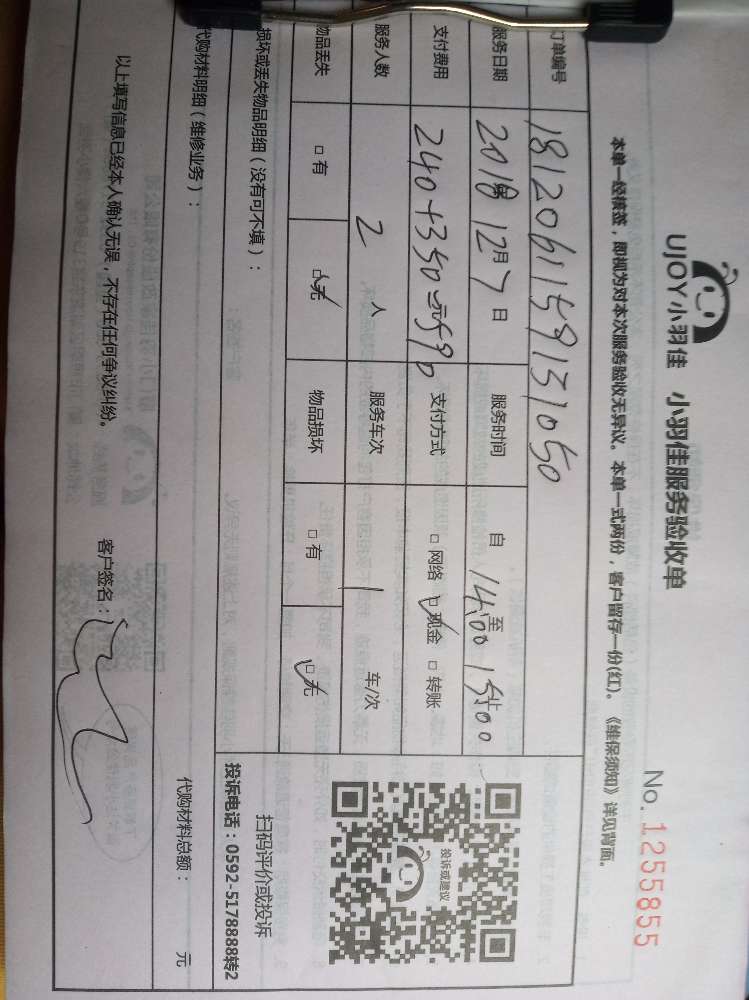 UJOY小羽佳 小羽佳服务验收单 No. 1255855
本单一经核签，即视为对本次服务验收无异议。本单一式两份，客户留存一份(红)。《维保须知》详见背面。
订单编号 1812061159131050
服务日期 2018年12月7日 服务时间 自14:00至15:00止
支付费用 240+350=590元 支付方式 □ 网络 ☑ 现金 □ 转账
服务人数 2 人 服务车次 1 车/次
物品丢失 □ 有 ☑ 无 物品损坏 □ 有 ☑ 无
投诉或建议
扫码评价或投诉
投诉电话：0592-5178888转2
损坏或丢失物品明细（没有可不填）：
代购材料明细（维修业务）： 代购材料总额： 元
以上填写信息已经本人确认无误，不存在任何争议纠纷。 客户签名：